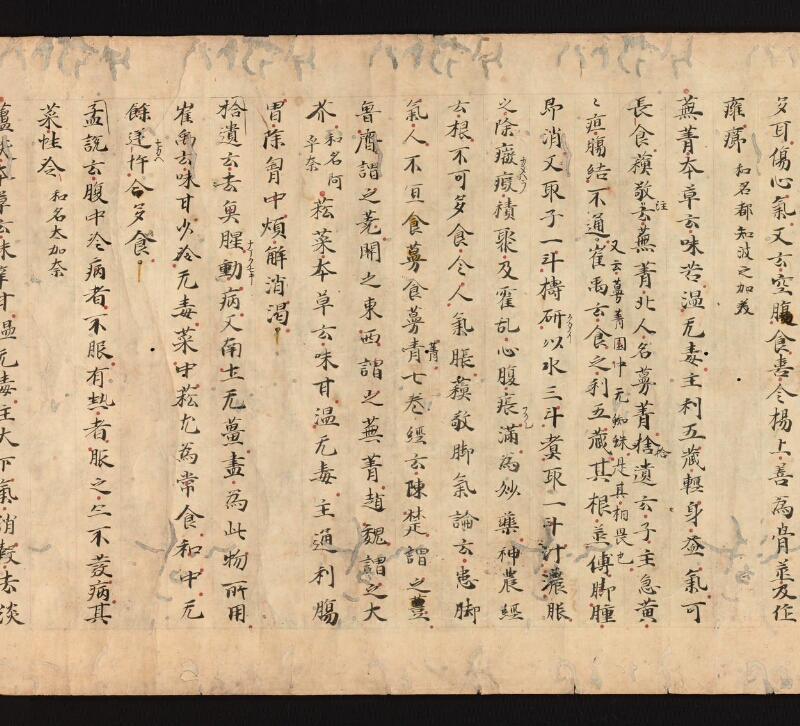 多耳傷心氣又云空腹食善令楊上善為骨並及作
癰瘍 和名都知波之加美
蕪菁本草云味苦温无毒主利五藏輕身益氣可
長食蘓敬注云蕪菁北人名蔓菁拾遺云子主急黄
又云蔓菁園中无蜘蛛是其相畏也
々疸腸結不通崔禹云食之利五藏其根並傅脚腫
即消又取子一斗檮研以水三斗煑取一斗汁濃服
之除癥瘕積聚及霍乱心腹脹滿為妙藥神農經
云根不可多食令人氣脹蘓敬脚氣論云患脚
氣人不宜食蔓食蔓青七卷經云陳楚謂之蘴
魯齊謂之蕘開之東西謂之蕪菁趙魏謂之大
芥 和名阿乎奈 菘菜本草云味甘温无毒主通利腸
胃除胷中煩解消渇
拾遺云去魚腥動病又南土无薑盡為此物所用
崔禹云味甘少冷无毒菜中菘尤為常食和中无
餘逆忤令多食
孟詵云腹中冷病者不服有熱者服之亡不發病其
菜性冷 和名太加奈
蘆茯本草云味辛甘温无毒主大下氣消穀去淡